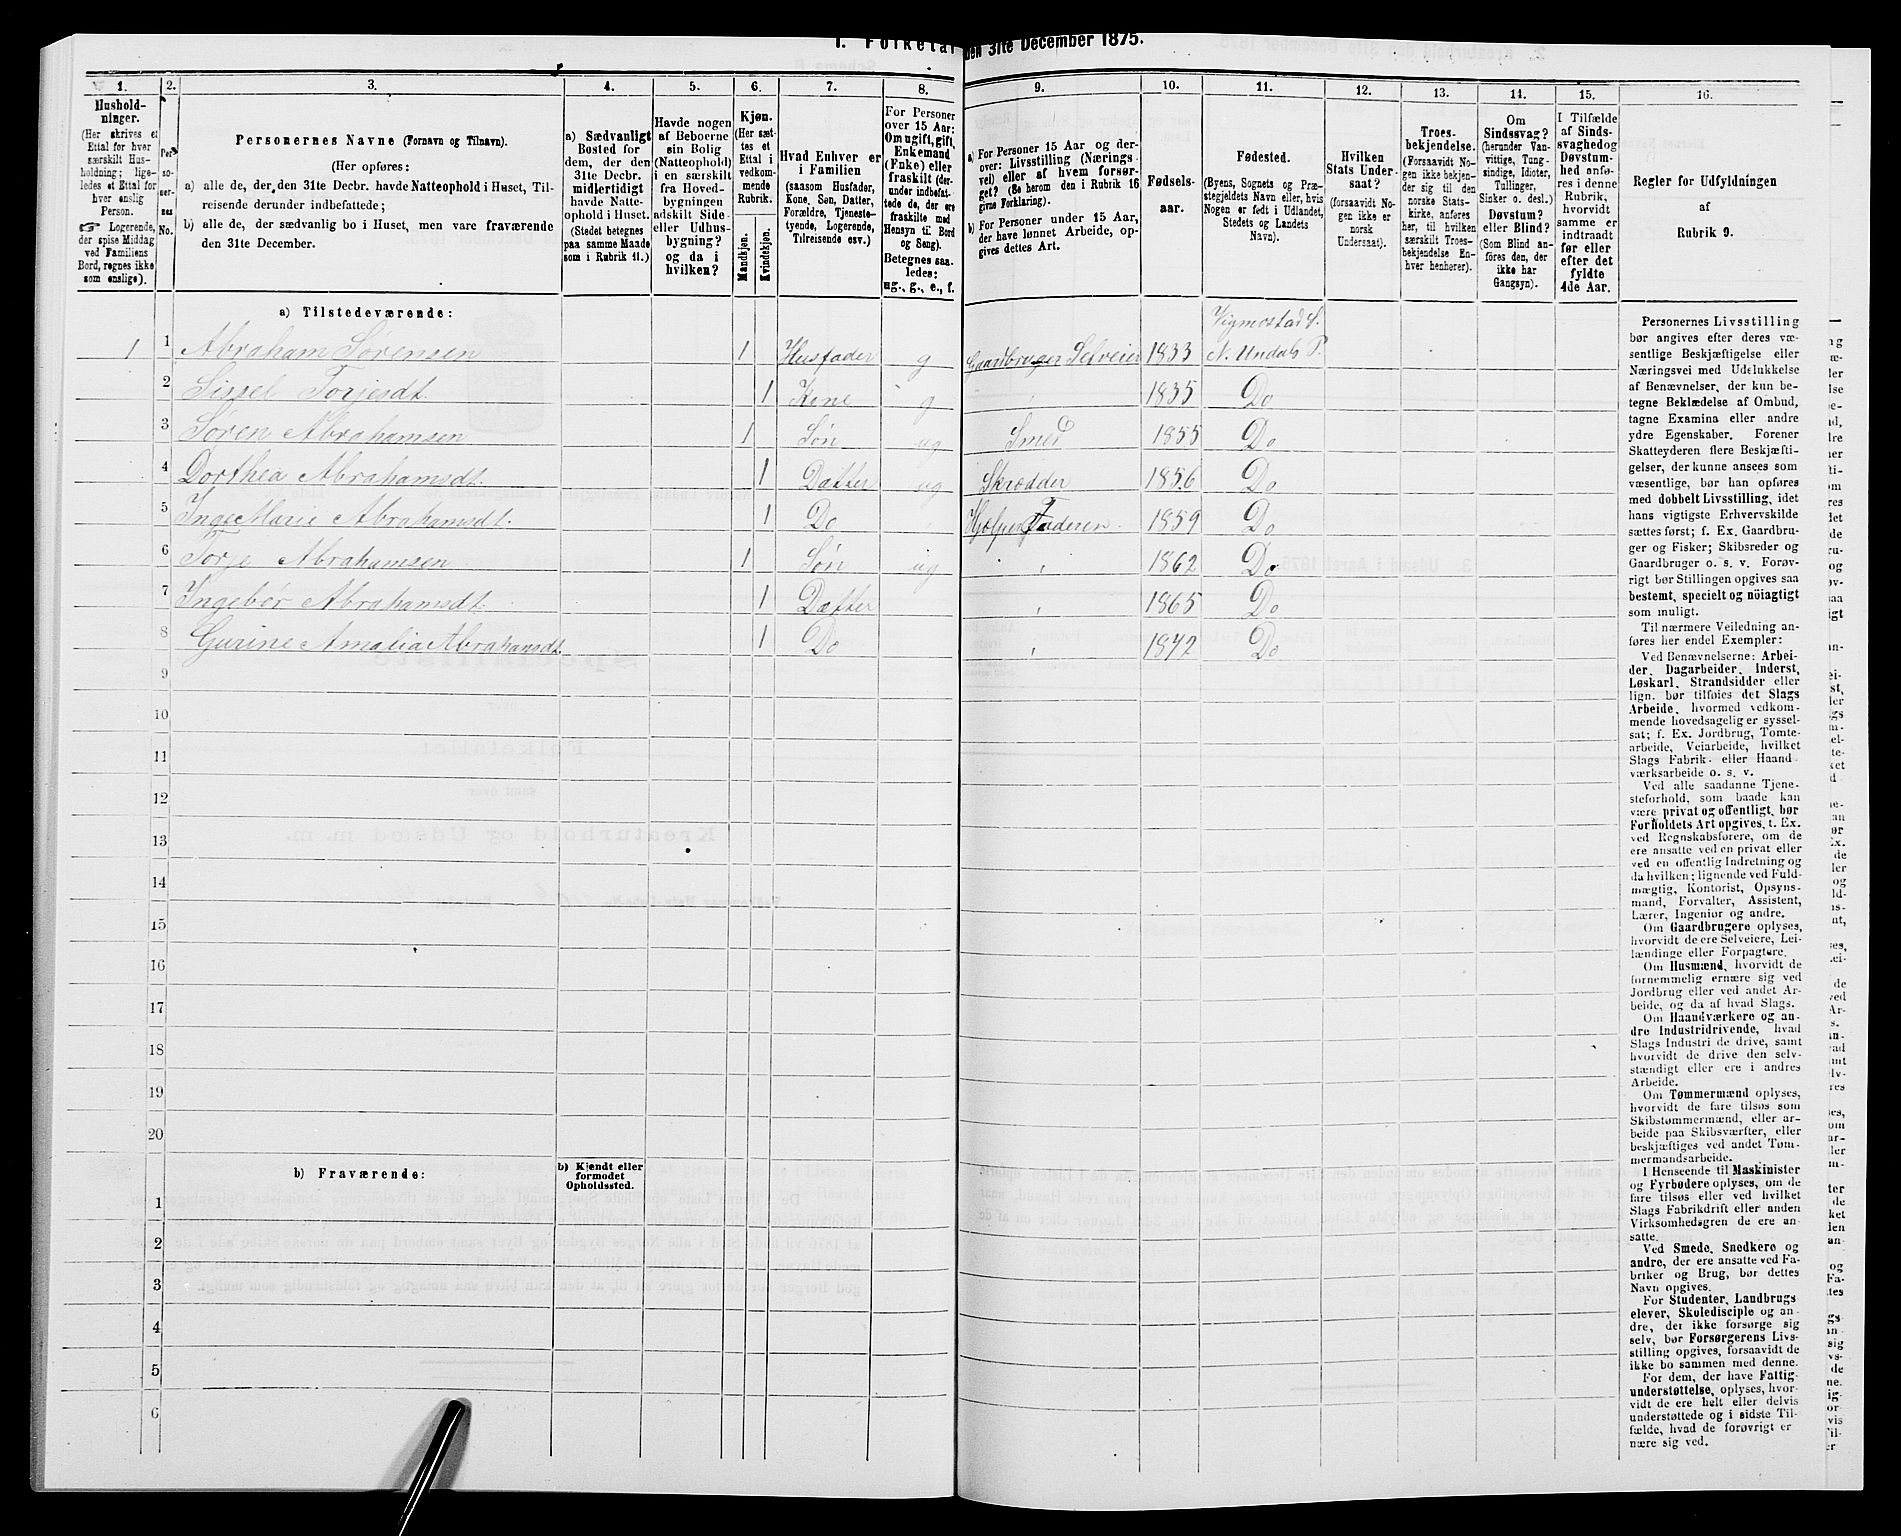 1. Folketal den 31te December 1875.
1.
Hushold-
ninger.
(Her skrives et
Ettal for hver
særskilt Hus-
holdning; lige-
ledes et Ettal for
hver enslig
Person.
Logerende,
der spise Middag
ved Familiens
Bord, regnes ikke
som enslige).
2.
Per-
so-
ner-
nes
No.
3.
Personernes Navne (Fornavn og Tilnavn).
(Her opføres:
a) alle de, der den 31te Decbr. havde Natteophold i Huset, Til-
reisende derunder indbefattede;
b) alle de, der sædvanlig bo i Huset, men vare fraværende
den 31te December.
4.
a) Sædvanligt
Bosted for
dem, der den
31te Decbr.
midlertidigt
havde Natte-
ophold i Huset.
(Stedet betegnes
paa samme Maade
som i Rubrik 11.)
5.
Havde nogen
af Beboerne
sin Bolig
(Natteophold)
i en særskilt
fra Hoved-
bygningen
adskilt Side-
eller Udhus-
bygning?
og da i
hvilken?
6.
Kjøn.
(Her sæt-
tes et
Ettal i
vedkom-
mende
Rubrik.
Mandkjøn.
Kvindekjøn.
7.
Hvad Enhver er
i Familien
(saasom Husfader,
Kone, Søn, Datter,
Forældre, Tjeneste-
tyende, Logerende,
Tilreisende osv.)
8.
For Personer
over 15 Aar:
Om ugift, gift,
Enkemand
(Enke) eller
fraskilt (der-
under indbefat-
tede de, der ere
fraskilte med
Hensyn til Bord
og Seng).
Betegnes saa-
ledes:
ug., g., e., f.
9.
a) For Personer 15 Aar og der-
over: Livsstilling (Nærings-
vei) eller af hvem forsør-
get? (Se herom den i Rubrik 16
givne Forklaring).
b) For Personer under 15 Aar,
der have lønnet Arbeide, op-
gives dettes Art.
10.
Fødsels-
aar.
11.
Fødested.
(Byens, Sognets og Præ-
stegjeldets Navn eller, hvis
Nogen er født i Udlandet,
Stedets og Landets
Navn).
12.
Hvilken
Stats Under-
saat?
(forsaavidt No-
gen ikke er
norsk
Undersaat).
13.
Troes-
bekjendelse.
(Forsaavidt No-
gen ikke bekjen-
der sig til den
norske Stats-
kirke, anføres
her, til hvilken
særskilt Troes-
bekjendelse En-
hver henhører).
14.
Om
Sindssvag?
(herunder Van-
vittige, Tung-
sindige, Idioter,
Tullinger,
Sinker o. desl.)
Døvstum?
eller Blind?
(Som Blind an-
føres den, der
ikke har
Gangsyn).
15.
I Tilfælde
af Sinds-
svaghed og
Døvstum-
hed anfø-
res i denne
Rubrik,
hvorvidt
samme er
indtraadt
før eller
efter det
fyldte
4de Aar.
16.
Regler for Udfyldningen
af
Rubrik 9.
a) Tilstedeværende:
Vigmostad S.
1 1 Abraham Sørensen 1 Husfader g Gaardbruger Selveier 1833 N. Undals P.
2 Sissel Torjesdt. 1 Kone g 1835 Do
3 Søren Abrahamsen 1 Søn ug Smed 1855 Do
4 Dorthea Abrahamsdt. 1 Datter ug Skrædder 1856 Do
5 Inge Marie Abrahamsdt. 1 Do Hjælper Faderen 1859 Do
6 Torje Abrahamsen 1 Søn ug 1862 Do
7 Ingebør Abrahamsdt. 1 Datter 1865 Do
8 Gurine Amalia Abrahamsdt. 1 Do 1872 Do
9
10
11
12
13
14
15
16
17
18
19
20
b) Fraværende:
b) Kjendt eller
formodet
Opholdssted.
1
2
3
4
5
6
Personernes Livsstilling
bør angives efter deres væ-
sentlige Beskjæftigelse eller
Næringsvei med Udelukkelse
af Benævnelser, der kun be-
tegne Beklædelse af Ombud,
tagne Examina eller andre
ydre Egenskaber. Forener
Skatteyderen flere Beskjæfti-
gelser, der kunne ansees som
væsentlige, bør han opføres
med dobbelt Livsstilling, idet
hans vigtigste Erhvervskilde
sættes først; f. Ex. Gaardbru-
ger og Fisker; Skibsreder og
Gaardbruger o. s. v. Forøv-
rigt bør Stillingen opgives saa
bestemt, specielt og nöiagtigt
som muligt.
Til nærmere Veiledning an-
føres her endel Exempler:
Ved Benævnelserne: Arbei-
der, Dagarbeider, Inderst,
Løskarl, Strandsidder eller
lign. bør tilføies det Slags
Arbeide, hvormed vedkom-
mende hovedsagelig er syssel-
sat; f. Ex. Jordbrug, Tomte-
arbeide, Veiarbeide, hvilket
Slags Fabrik- eller Haand-
værksarbeide o. s. v.
Ved alle saadanne Tjene-
steforhold, som baade kan
være privat og offentligt, bør
Forholdets Art opgives, t. Ex.
ved Regnskabsførere, om de
ere ansatte ved en privat eller
ved en offentlig Indretning og
da hvilken; lignende ved Fuld-
mægtig, Kontorist, Opsyns-
mand, Forvalter, Assistent,
Lærer, Ingeniør og andre.
Om Gaardbrugere oplyses,
hvorvidt de ere Selveiere, Lei-
lændinge eller Forpagtere.
Om Husmænd, hvorvidt de
fornemmelig ernære sig ved
Jordbrug eller ved andet Ar-
beide, og da af hvad Slags.
Om Haandværkere og an-
dre Industridrivende, hvad
Slags Industri de drive, samt
hvorvidt de drive den selv-
stændigt eller ere i andres
Arbeide.
Om Tømmermænd oplyses,
hvorvidt de fare tilsøs som
Skibstømmermænd, eller ar-
beide paa Skibsværfter, eller
beskjæftiges ved andet Tøm-
mermandsarbeide.
I Henseende til Maskinister
og Fyrbødere oplyses, om de
fare tilsøs eller ved hvilket
Slags Fabrikdrift eller anden
Virksomhedsgren de ere an-
satte.
Ved Smede, Snedkere og
andre, der ere ansatte ved Fa-
briker og Brug, bør dettes
Navn opgives.
For Studenter, Landbrugs-
elever, Skoledisciple og an-
dre, der ikke forsørge sig
selv, bør Forsørgerens Livs-
stilling opgives, forsaavidt de
ikke bo sammen med denne.
For dem, der have Fattig-
understøttelse, oplyses, hvor-
vidt de ere helt eller delvis
understøttede og i sidste Til-
fælde, hvad de forøvrigt er
nære sig ved.